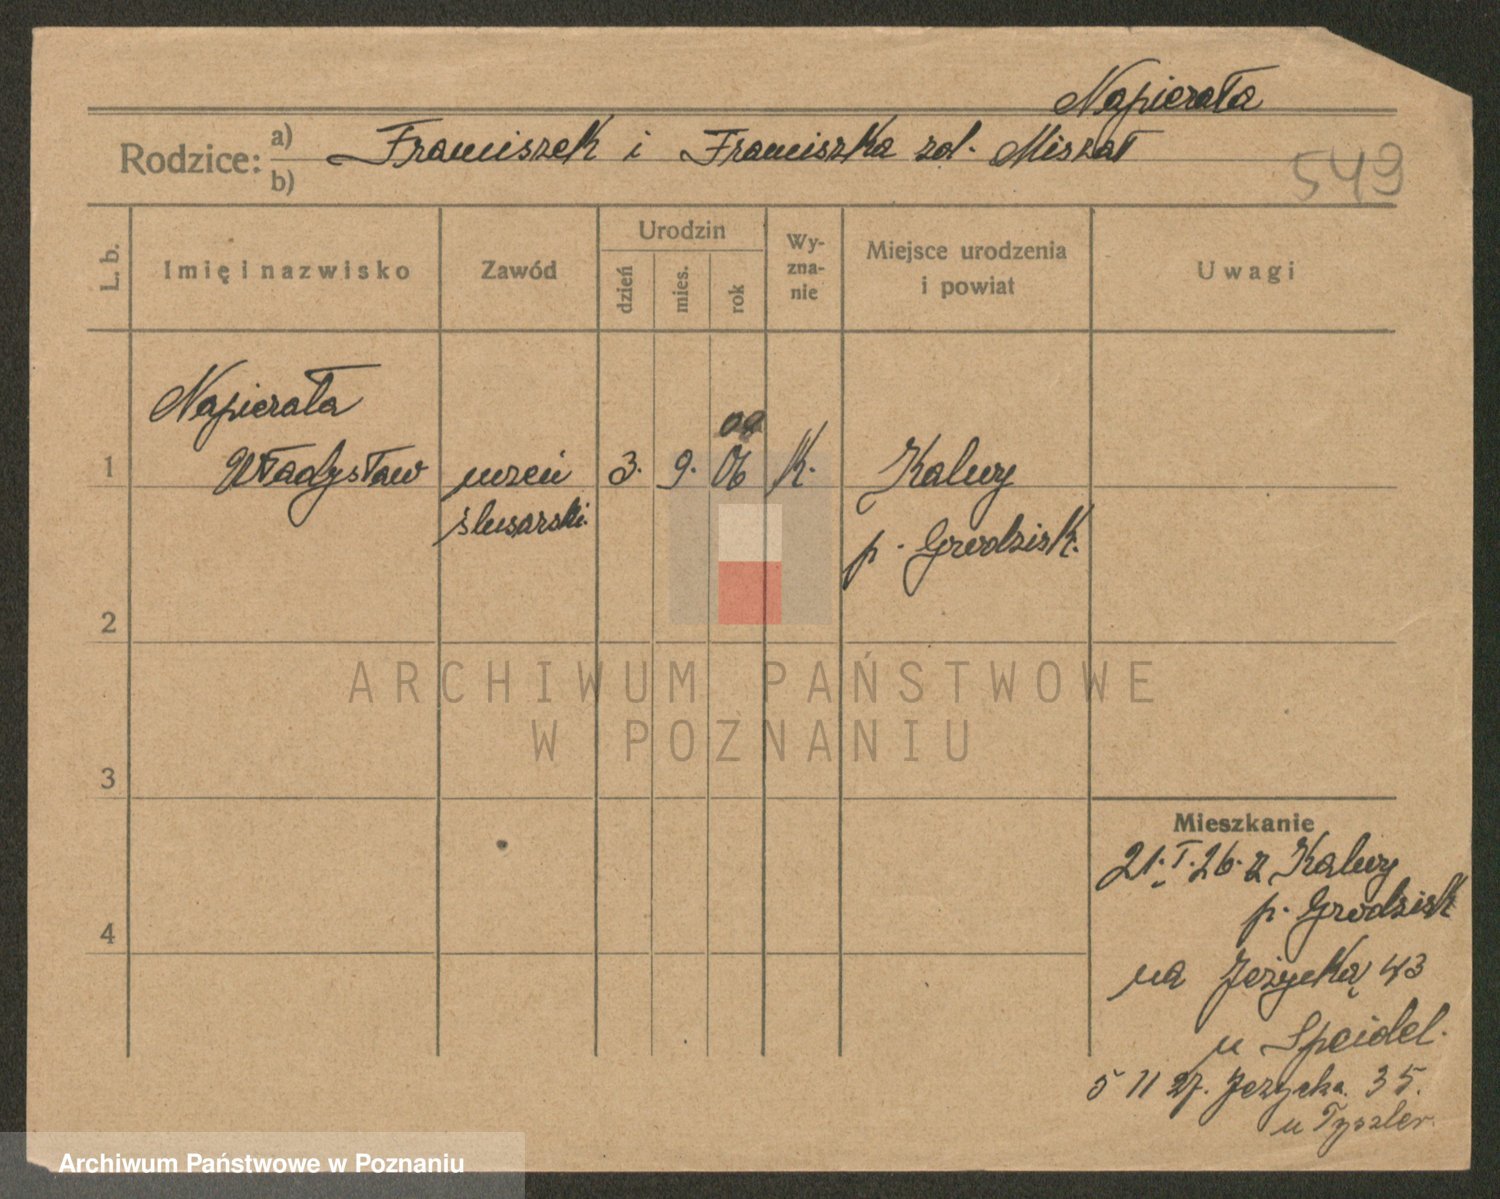 Napierała
Rodzice: a) Franciszek i Franciszka zd. Miszał
b)
549
L. b.
Imię i nazwisko
Zawód
Urodzin
dzień
mies.
rok
Wy-
zna-
nie
Miejsce urodzenia
i powiat
Uwagi
Napierała
08
1 Władysław uczeń 3. 9. 06 k. Kalwy
ślusarski. p. Grodzisk.
2
3
4
Mieszkanie
21. I. 26. z Kalwy
p. Grodzisk
na Jeżycką 43
u Speidel.
5 11 27. Jeżycka. 35.
u Tyszler.
ARCHIWUM PAŃSTWOWE
W POZNANIU
Archiwum Państwowe w Poznaniu